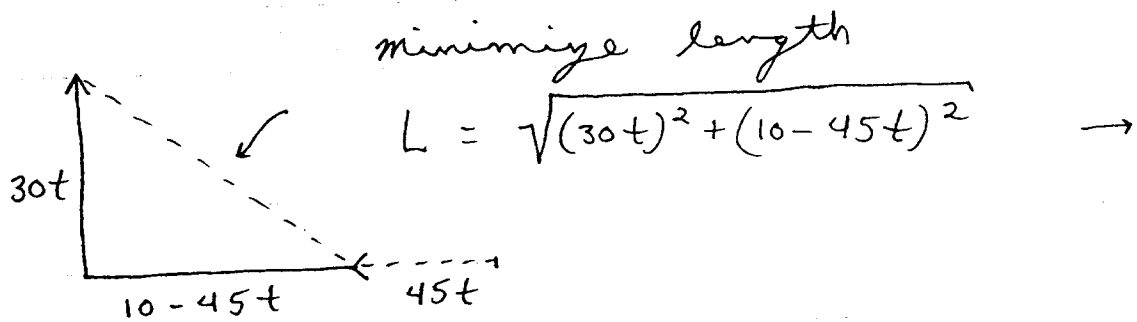 minimize length
L = √((30t)² + (10-45t)²) →
30t
10-45t 45t